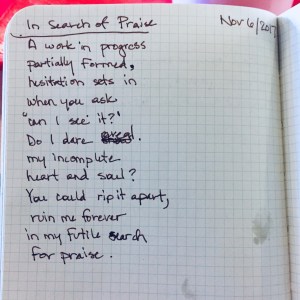 In Search of Praise
Nov 6/2017
A work in progress
partially formed,
hesitation sets in
when you ask
"can I see it?"
Do I dare reveal.
my incomplete
heart and soul?
You could rip it apart,
ruin me forever
in my futile search
for praise.